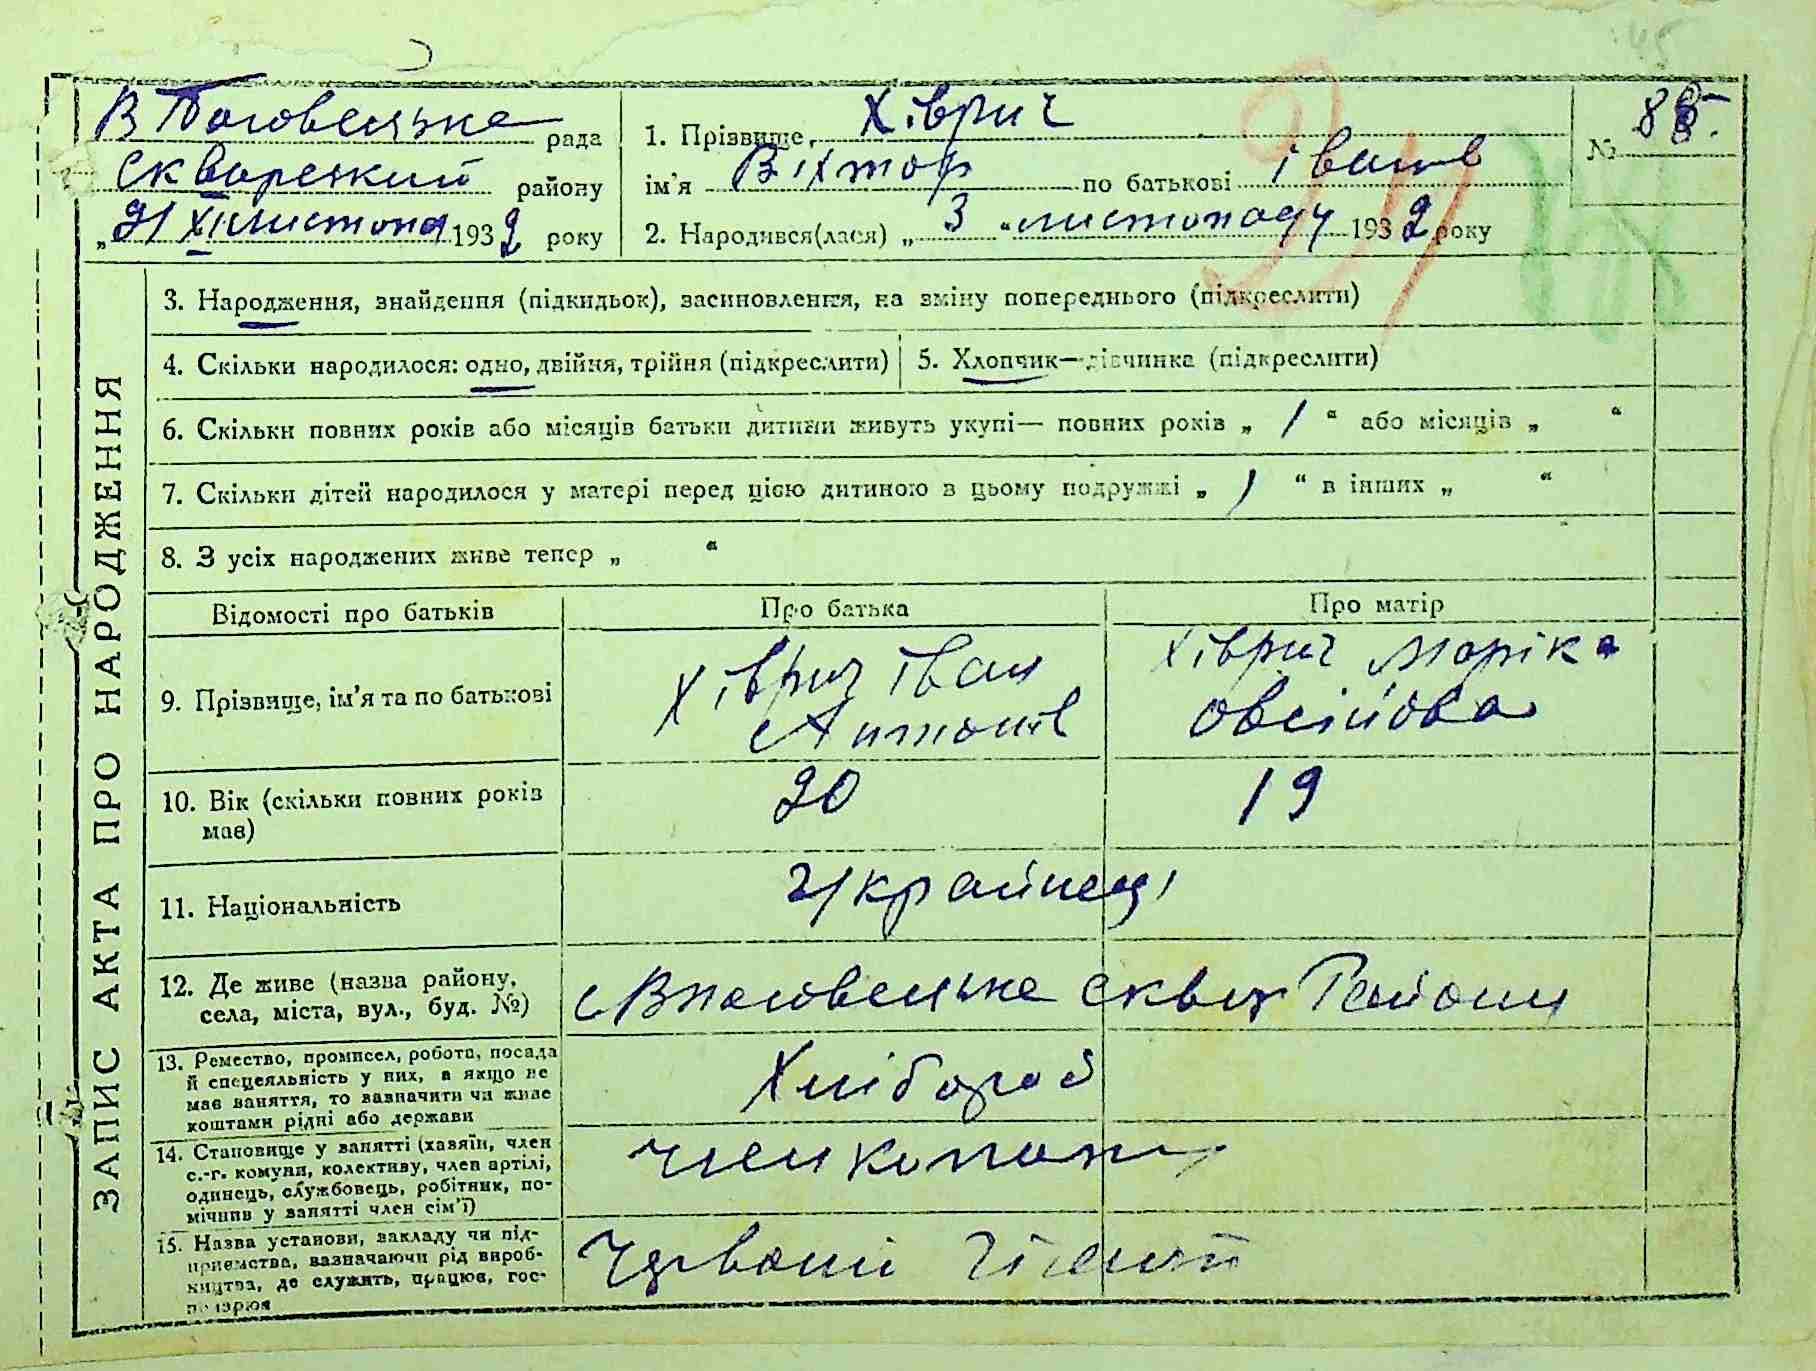 В Половецька рада
Сквирський району
„21 XI листопад 1932 року
1. Прізвище, Хіврич
ім'я Віктор по батькові Іванів
2. Народився(лася) „3" листопаду 1932 року
№ 88.
3. Народження, знайдення (підкидьок), засиновлення, на зміну попереднього (підкреслити)
4. Скільки народилося: одно, двійня, трійня (підкреслити)
5. Хлопчик—дівчинка (підкреслити)
6. Скільки повних років або місяців батьки дитини живуть укупі— повних років „ 1 " або місяців „ "
7. Скільки дітей народилося у матері перед цією дитиною в цьому подружжі „ 1 " в інших „ "
8. З усіх народжених живе тепер „ "
ЗАПИС АКТА ПРО НАРОДЖЕННЯ
Відомості про батьків Про батька Про матір
9. Прізвище, ім'я та по батькові
Хіврич Іван
Антонів
Хіврич Маріка
Овсійова
10. Вік (скільки повних років
має)
20
19
11. Національність
Українці
12. Де живе (назва району,
села, міста, вул., буд. №)
с Вполовецьке Сквир Району
13. Ремество, промисел, робота, посада
й спеціяльність у них, а якщо не
має заняття, то зазначити чи живе
коштами рідні або держави
Хлібороб
14. Становище у занятті (хазяїн, член
с.-г. комуни, колективу, член артілі,
одинець, службовець, робітник, по-
мічник у занятті член сім'ї)
член
15. Назва установи, закладу чи під-
приємства, зазначаючи рід вироб-
ництва, де служить, працює, гос-
подарює
Червоний